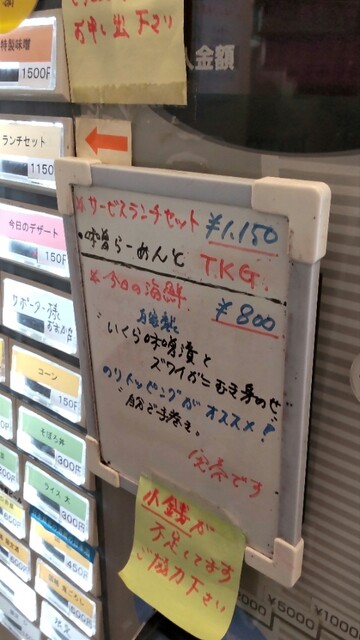 お申し出下さい
入金額
特製味噌
1500円
ランチセット
1150
今日のデザート
150円
コーン
150円
そぼろ丼
300円
ライス 大
*サービスランチセット ¥1.150
・味噌らーめんと TKG.
*今日の海鮮 ¥800
自家製
"いくら味噌漬と
ズワイガニむき身のせ"
のりトッピングがオススメ!
完売です
小銭が
不足してます
ご協力下さい
2000
¥5000
¥1000